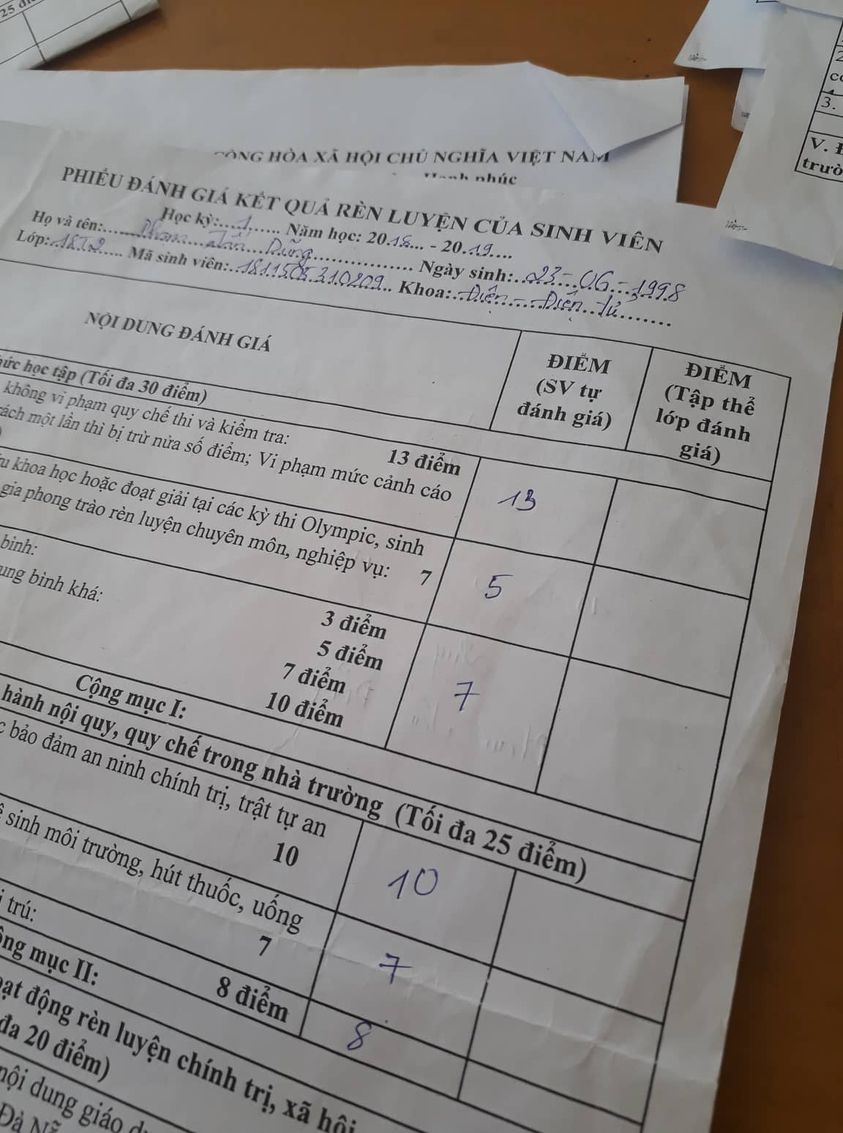 25
CỘNG HÒA XÃ HỘI CHỦ NGHĨA VIỆT NAM
Hạnh phúc
PHIẾU ĐÁNH GIÁ KẾT QUẢ RÈN LUYỆN CỦA SINH VIÊN
Học kỳ:...1...... Năm học: 2018... - 2019...
Họ và tên:...Phạm ... Dũng................ Ngày sinh:..23-06-1998
Lớp:.18T2...... Mã sinh viên:.1811505310209.. Khoa:..Điện - Điện tử........
NỘI DUNG ĐÁNH GIÁ
ĐIỂM
(SV tự
đánh giá)
ĐIỂM
(Tập thể
lớp đánh
giá)
thức học tập (Tối đa 30 điểm)
không vi phạm quy chế thi và kiểm tra:
13 điểm
ách một lần thì bị trừ nửa số điểm; Vi phạm mức cảnh cáo
13
u khoa học hoặc đoạt giải tại các kỳ thi Olympic, sinh
gia phong trào rèn luyện chuyên môn, nghiệp vụ: 7
5
bình:
3 điểm
ung bình khá:
5 điểm
7 điểm
10 điểm
7
Cộng mục I:
hành nội quy, quy chế trong nhà trường (Tối đa 25 điểm)
bảo đảm an ninh chính trị, trật tự an
10
10
sinh môi trường, hút thuốc, uống
7
7
trú:
8 điểm
8
ộng mục II:
oạt động rèn luyện chính trị, xã hội
đa 20 điểm)
nội dung giáo
Đà
3.
V.
trườ